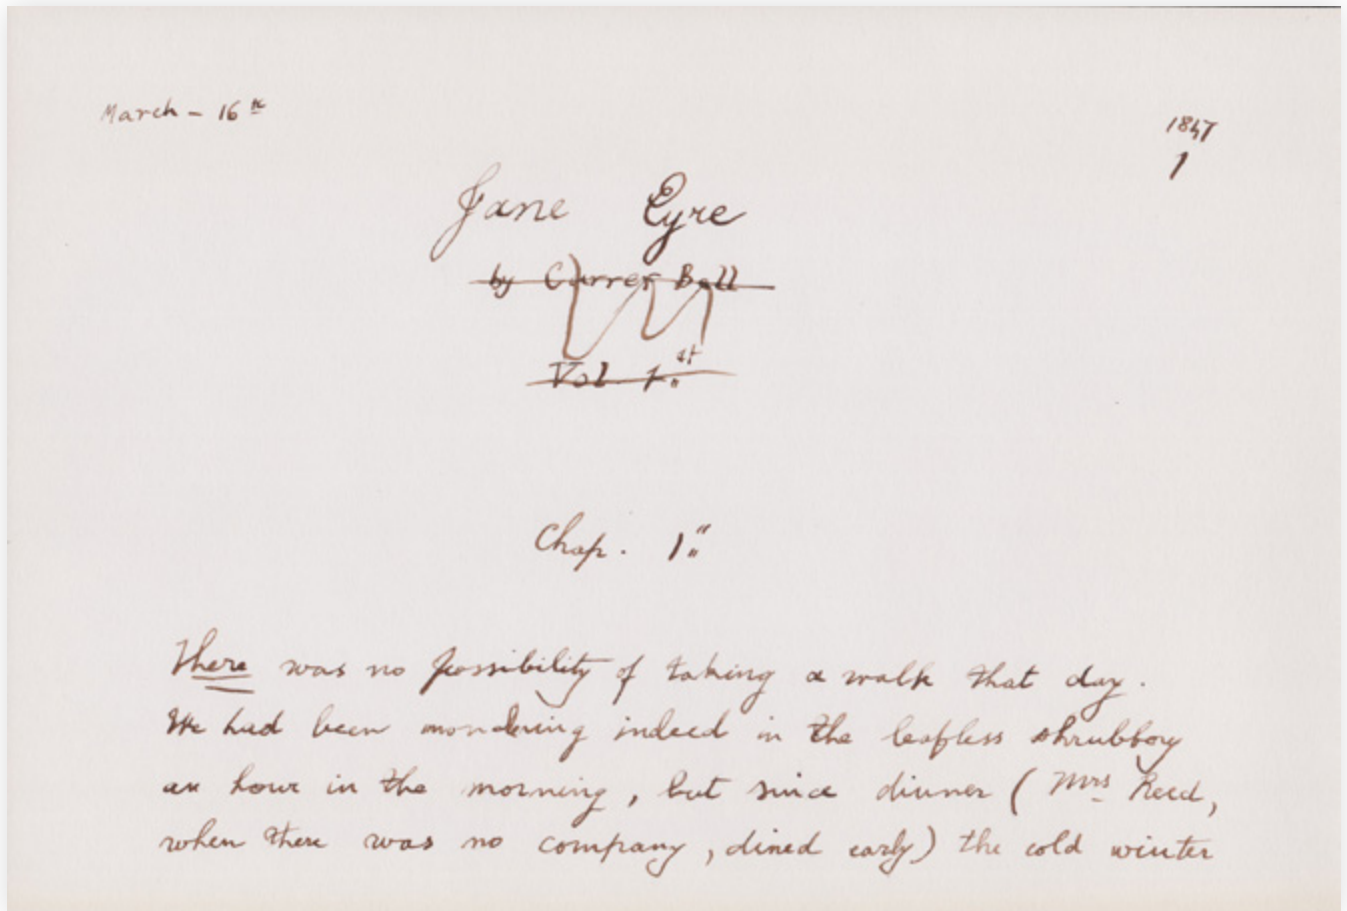 March - 16th
1847
1
Jane Eyre
by Currer Bell
Vol 1.st
Chap. 1
There was no possibility of taking a walk that day.
We had been wandering indeed in the leafless shrubbery
an hour in the morning, but since dinner (Mrs Reed,
when there was no company, dined early) the cold winter